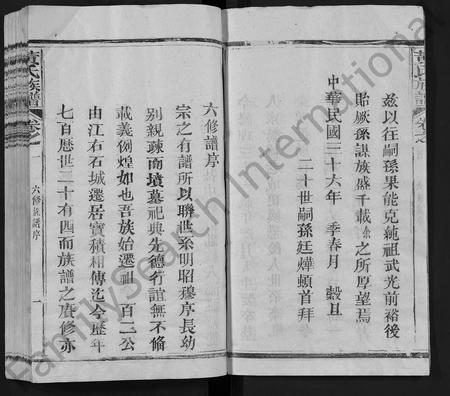 茲以往嗣孫果能克繩祖武光前裕後
貽厥孫謀族盛千載余之所厚望焉
中華民國三十六年 季春月 穀旦
二十世嗣孫廷燁頓首拜
六修譜序
宗之有譜所以聯世系明昭穆序長幼
別親疎而墳墓祀典先德行誼無不備
載義例煌如也吾族始遷祖 百二公
由江右石城遷居寶積相傳迄今歷年
七百歷世二十有四而族譜之賡修亦
黃氏族譜 卷之一 六修族譜序 一
黃氏族譜 卷之
FamilySearch International